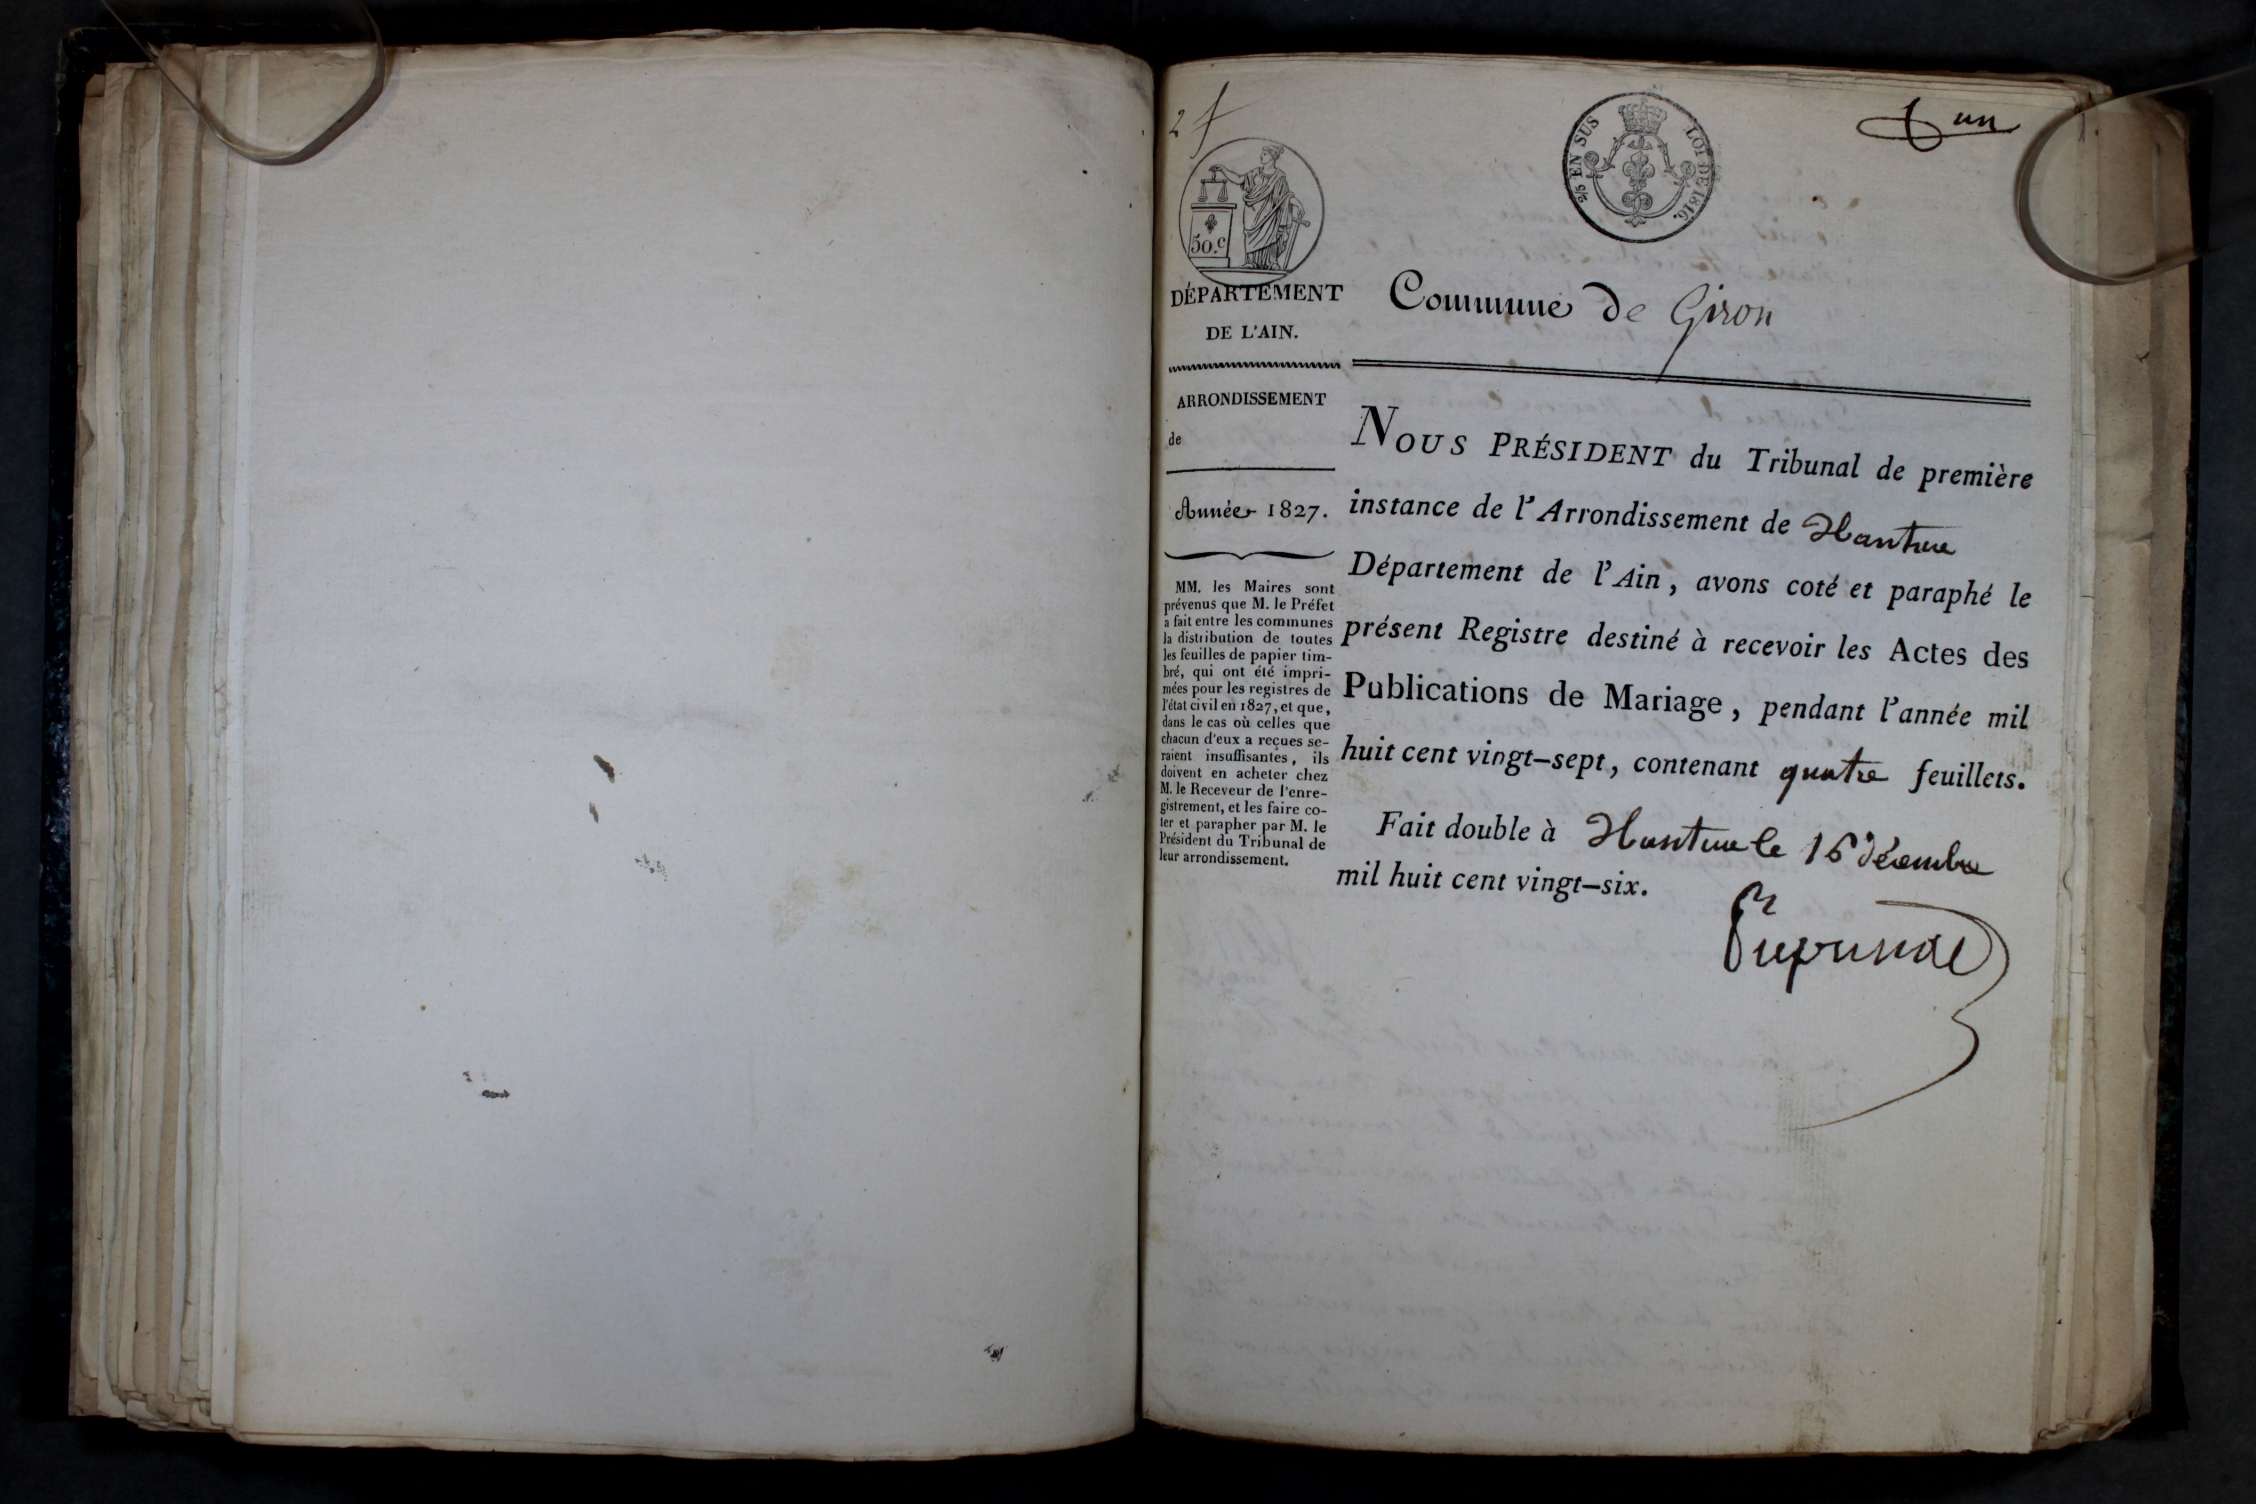 2 f
1 un
2/5 EN SUS LOI DE 1816.
50.c
DÉPARTEMENT
DE L'AIN.
ARRONDISSEMENT
de
Année 1827.
MM. les Maires sont
prévenus que M. le Préfet
a fait entre les communes
la distribution de toutes
les feuilles de papier tim-
bré, qui ont été impri-
mées pour les registres de
l'état civil en 1827, et que,
dans le cas où celles que
chacun d'eux a reçues se-
raient insuffisantes, ils
doivent en acheter chez
M. le Receveur de l'enre-
gistrement, et les faire co-
ter et parapher par M. le
Président du Tribunal de
leur arrondissement.
Commune de Giron
NOUS PRÉSIDENT du Tribunal de première
instance de l'Arrondissement de Nantua
Département de l'Ain, avons coté et paraphé le
présent Registre destiné à recevoir les Actes des
Publications de Mariage, pendant l'année mil
huit cent vingt-sept, contenant quatre feuillets.
Fait double à Nantua le 16 décembre
mil huit cent vingt-six.